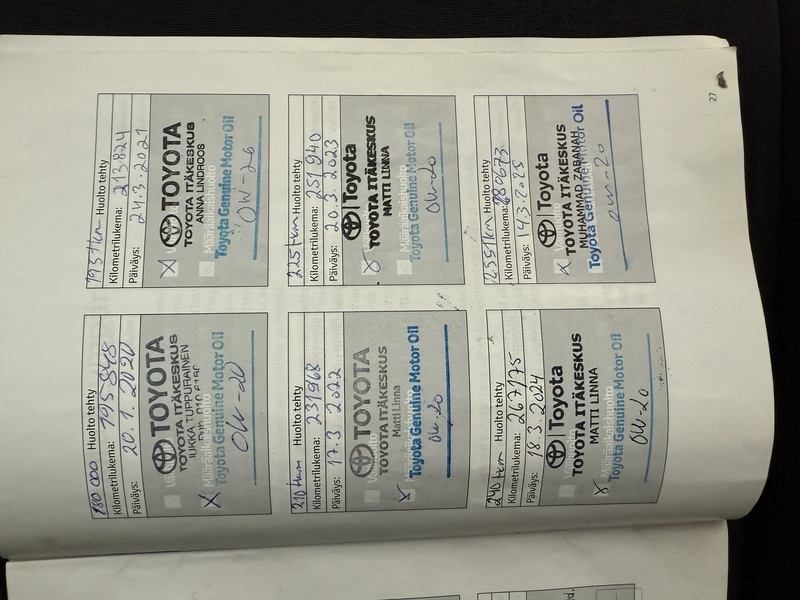 180 000 Huolto tehty
Kilometrilukema: 195 848
Päiväys: 20.1.2020
TOYOTA
TOYOTA ITÄKESKUS
JUKKA TUPPURAINEN
X Määräaikaishuolto
Toyota Genuine Motor Oil
0W-20
195 tkm Huolto tehty
Kilometrilukema: 213.824
Päiväys: 24.3.2021
X TOYOTA
TOYOTA ITÄKESKUS
ANNA LINDROOS
Määräaikaishuolto
Toyota Genuine Motor Oil
0W-20
210 tkm Huolto tehty
Kilometrilukema: 231968
Päiväys: 17.3 2022
TOYOTA
TOYOTA ITÄKESKUS
Matti Linna
X Määräaikaishuolto
Toyota Genuine Motor Oil
0W-20
225 tkm Huolto tehty
Kilometrilukema: 251 940
Päiväys: 20.3.2023
X Toyota
TOYOTA ITÄKESKUS
MATTI LINNA
Määräaikaishuolto
Toyota Genuine Motor Oil
0W-20
240 tkm Huolto tehty
Kilometrilukema: 267175
Päiväys: 18.3.2024
Toyota
TOYOTA ITÄKESKUS
MATTI LINNA
X Määräaikaishuolto
Toyota Genuine Motor Oil
0W-20
Huolto tehty
Kilometrilukema: 280673
Päiväys: 14.3.2025
X Toyota
TOYOTA ITÄKESKUS
MUHAMMAD ZABANAH
Toyota Genuine Motor Oil
0W-20
27